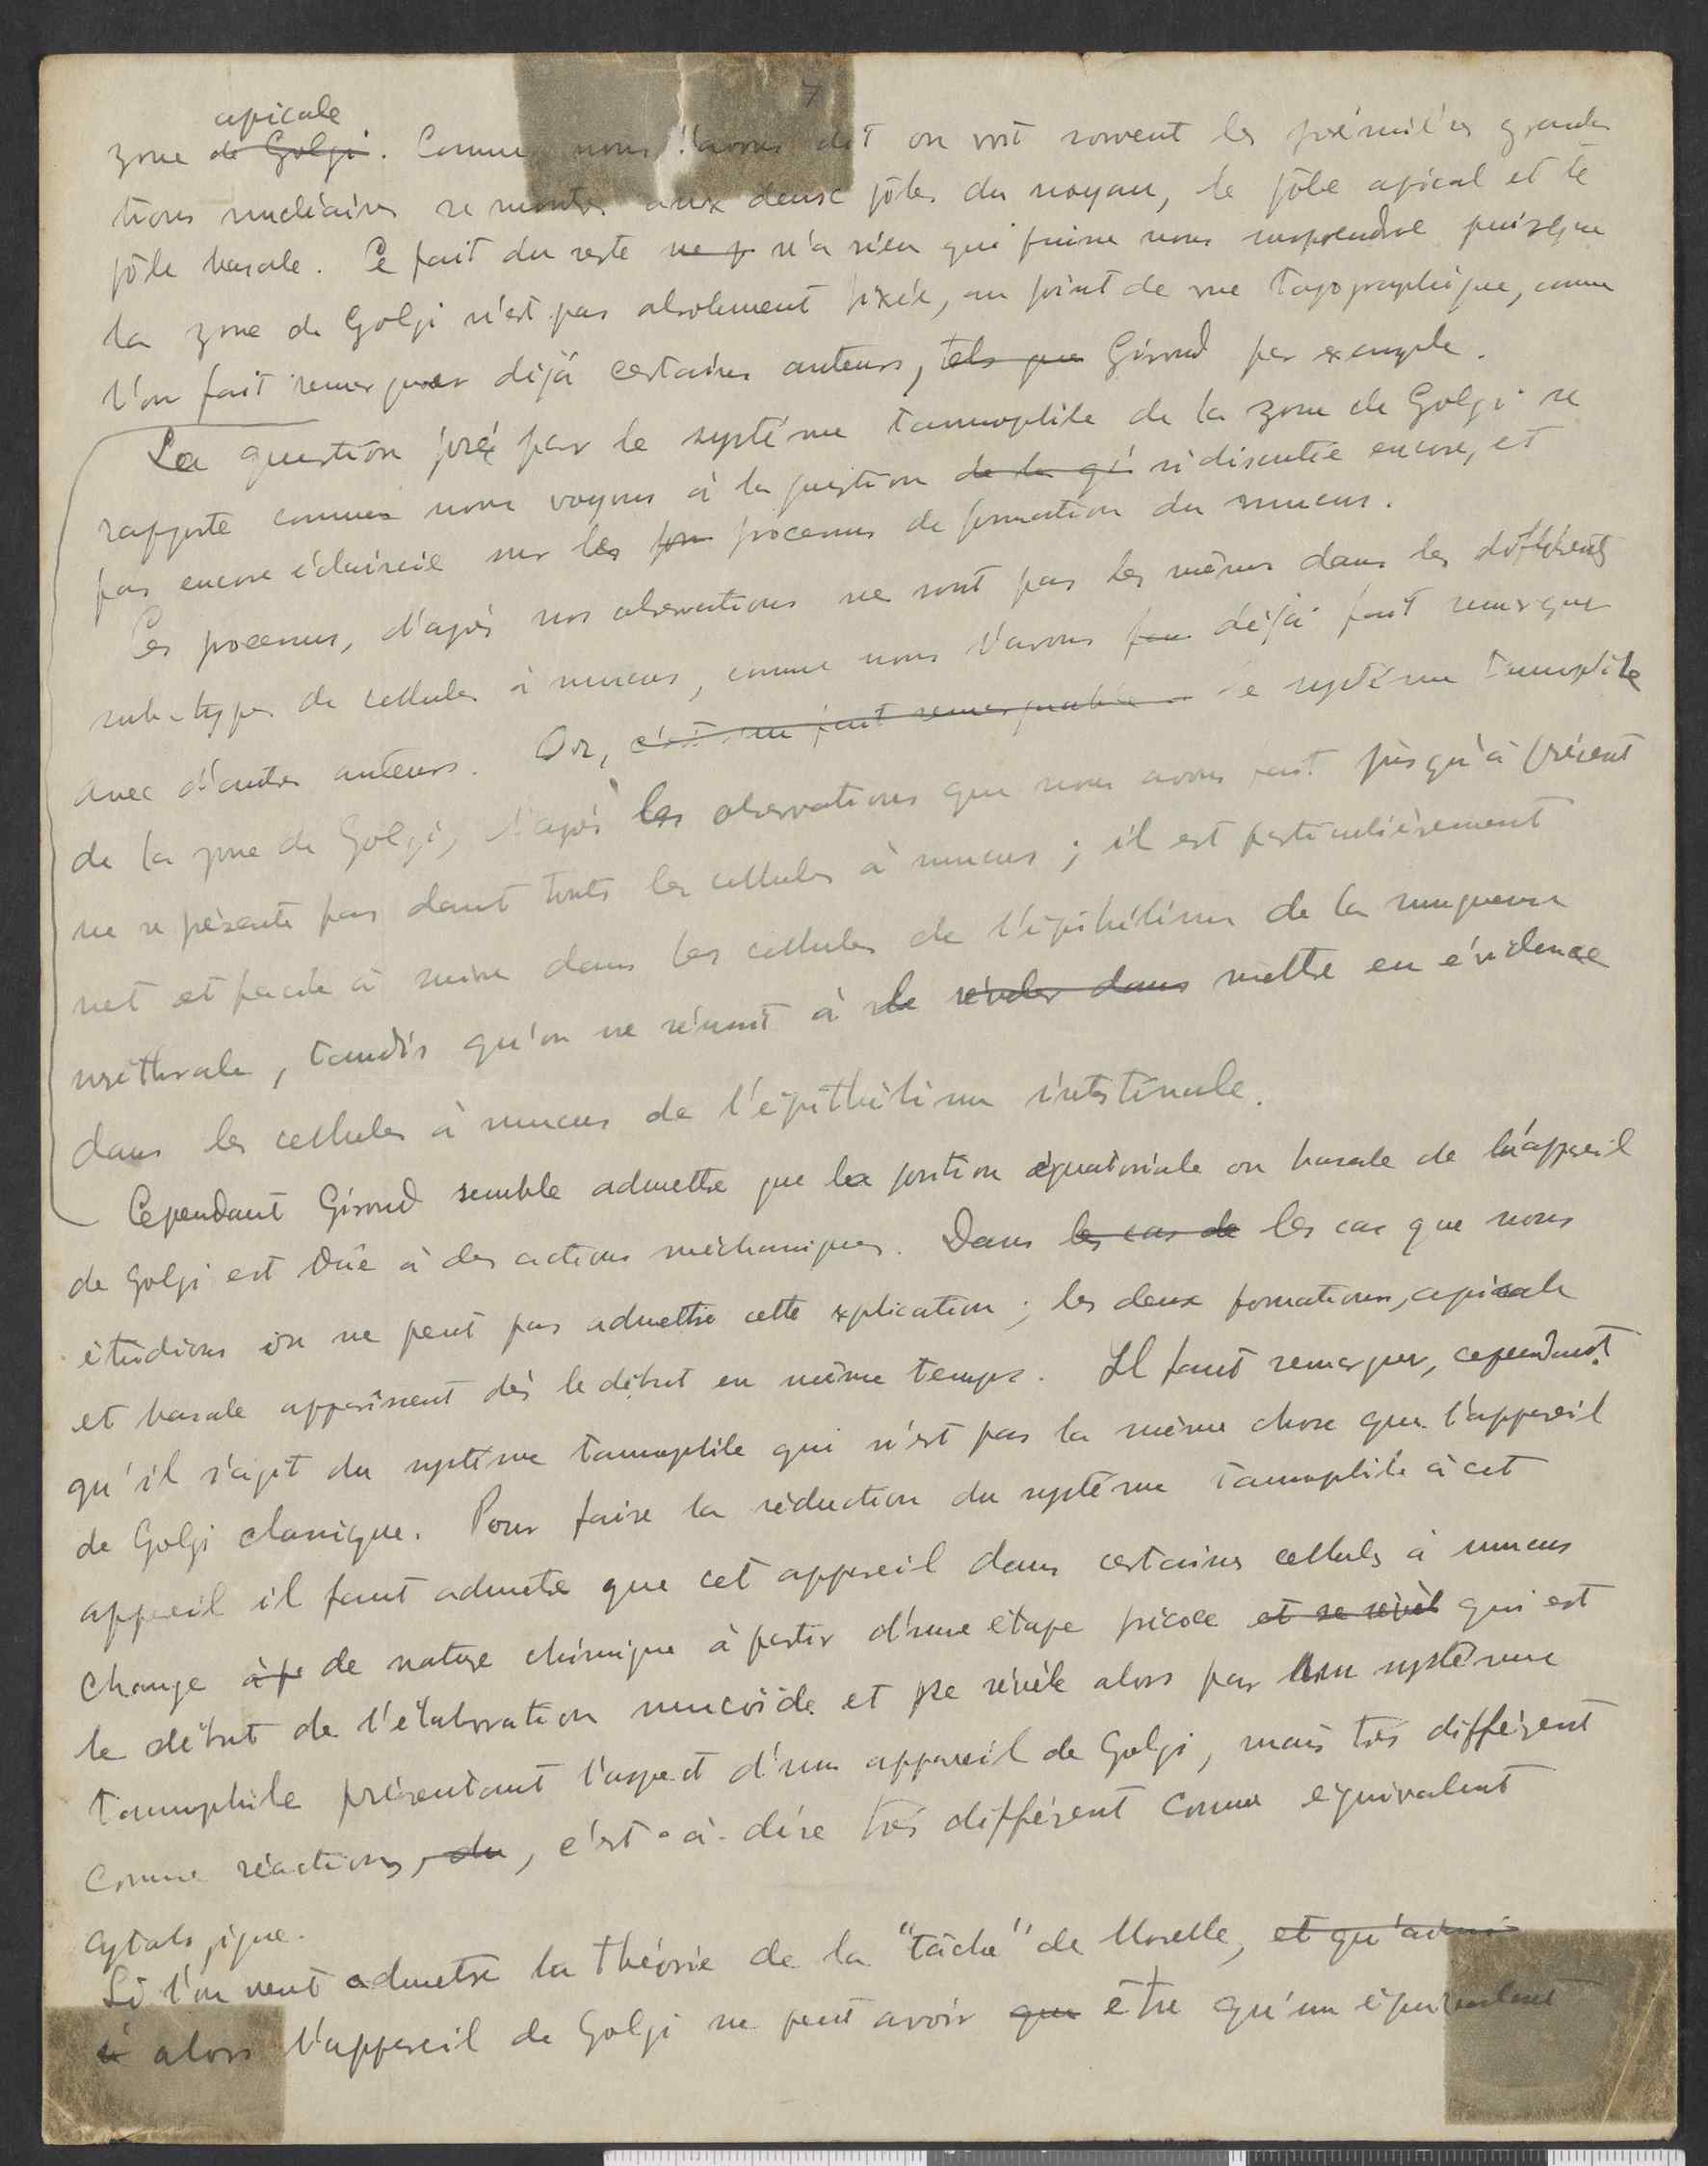 7
apicale
zone de Golgi. Comme nous l'avons dit on voit souvent les prémiérs granula
tions nucléaires se montrer aux deux pôles du noyau, le pôle apical et le
pôle basale. Ce fait du reste ne p n'a rien qui puisse nous surprendre puisque
la zone de Golgi n'est pas absolument fixée, au point de vue topographique, comme
l'on fait remarquer déjà certains auteurs, tels que Giroud par exemple.
La question posé par le système tannophile de la zone de Golgi se
rapporte comme nous voyons à la question de la qé si discutée encore, et
pas encore éclaircie sur les for processus de formation du mucus.
Ces processus, d'après nos observations ne sont pas les mêmes dans les différents
sub-types de cellules à mucus, comme nous l'avons fau déjà fait remarquer
avec d'autres auteurs. Or, c'est un fait remarquable le système tannophile
de la zone de Golgi, d'après les observations que nous avons fait jusqu'à présent
ne se présente pas dant touts les cellules à mucus; il est particulièrement
net et facile à suivre dans les cellules de l'épithélium de la muqueuse
uréthrale, tandis qu'on ne réussit à le révéler dans mettre en évidence
dans les cellules à mucus de l'épithélium intestinale.
Cependant Giroud semble admettre que la position équatoriale ou basale de l'appareil
de Golgi est dûe à des actions méchaniques. Dans les cas de les cas que nous
étudions on ne peut pas admettre cette explication; les deux formations, apicale
et basale apparissent dès le début en même temps. Il faut remarquer, cependant
qu'il s'agit du système tannophile qui n'est pas la même chose que l'appareil
de Golgi classique. Pour faire la réduction du système tannophile à cet
appareil il faut admetre que cet appareil dans certaines cellules à mucus
change à p de nature chimique à partir d'une étape précoce et se révèl qui est
le début de l'élaboration mucoïde et se révèle alors par un système
tannophile présentant l'aspect d'un appareil de Golgi, mais très différent
comme réactions, du, c'est-à-dire très différent comme équivalent
cytologique.
Si l'on veut admetre la théorie de la "tâche" de Morelle, et qu'admi
si alors l'appareil de Golgi ne peut avoir que être qu'un équivalent